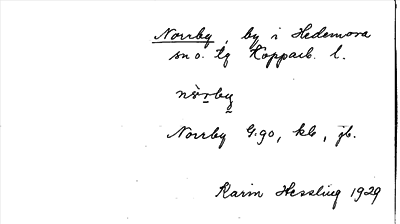 Norrby, by i Hedemora
sn o. tg Kopparb. l.
nòrby
Norrby G:go, kb, jb.
Karin Hessling 1929